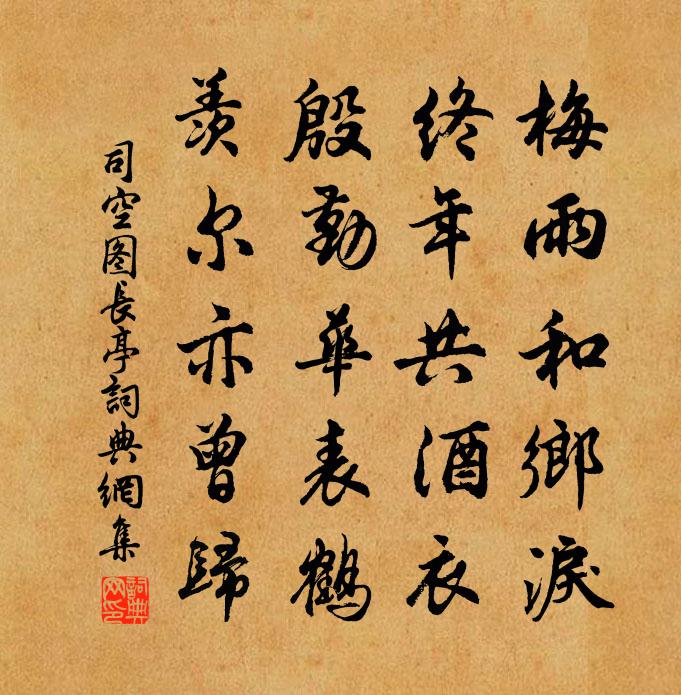 梅雨和鄉淚
終年共酒衣
殷勤華表鶴
羨尔亦曾歸
司空图長亭詞典網集
詞典网印